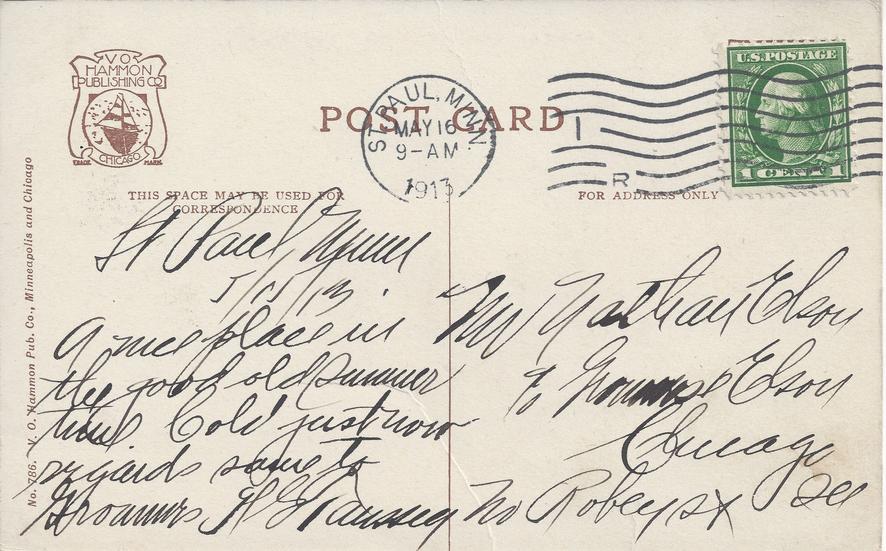 V O
HAMMON
PUBLISHING CO
CHICAGO
TRADE MARK
POST CARD
ST. PAUL, MINN.
MAY 16
9-AM
1913
I
R
U.S. POSTAGE
1 CENT 1
THIS SPACE MAY BE USED FOR
CORRESPONDENCE
FOR ADDRESS ONLY
No. 786. V. O. Hammon Pub. Co., Minneapolis and Chicago
St Paul, Minn
5/15/13.
A nice place in
the good old summer
time Cold just now
regards same to
H G
Mr Nathan Elson
% Elson
Chicago
No Robey st Ill